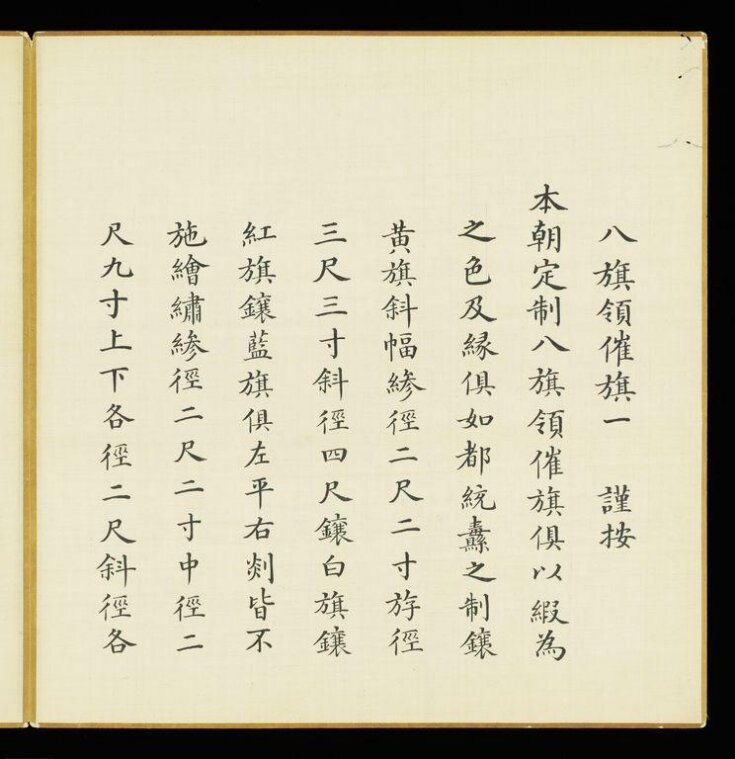 八旗領催旗一　謹按
本朝定制八旗領催旗俱以緞為
之色及縁俱如都統纛之制鑲
黄旗斜幅縿徑二尺二寸斿徑
三尺三寸斜徑四尺鑲白旗鑲
紅旗鑲藍旗俱左平右剡皆不
施繪繡縿徑二尺二寸中徑二
尺九寸上下各徑二尺斜徑各